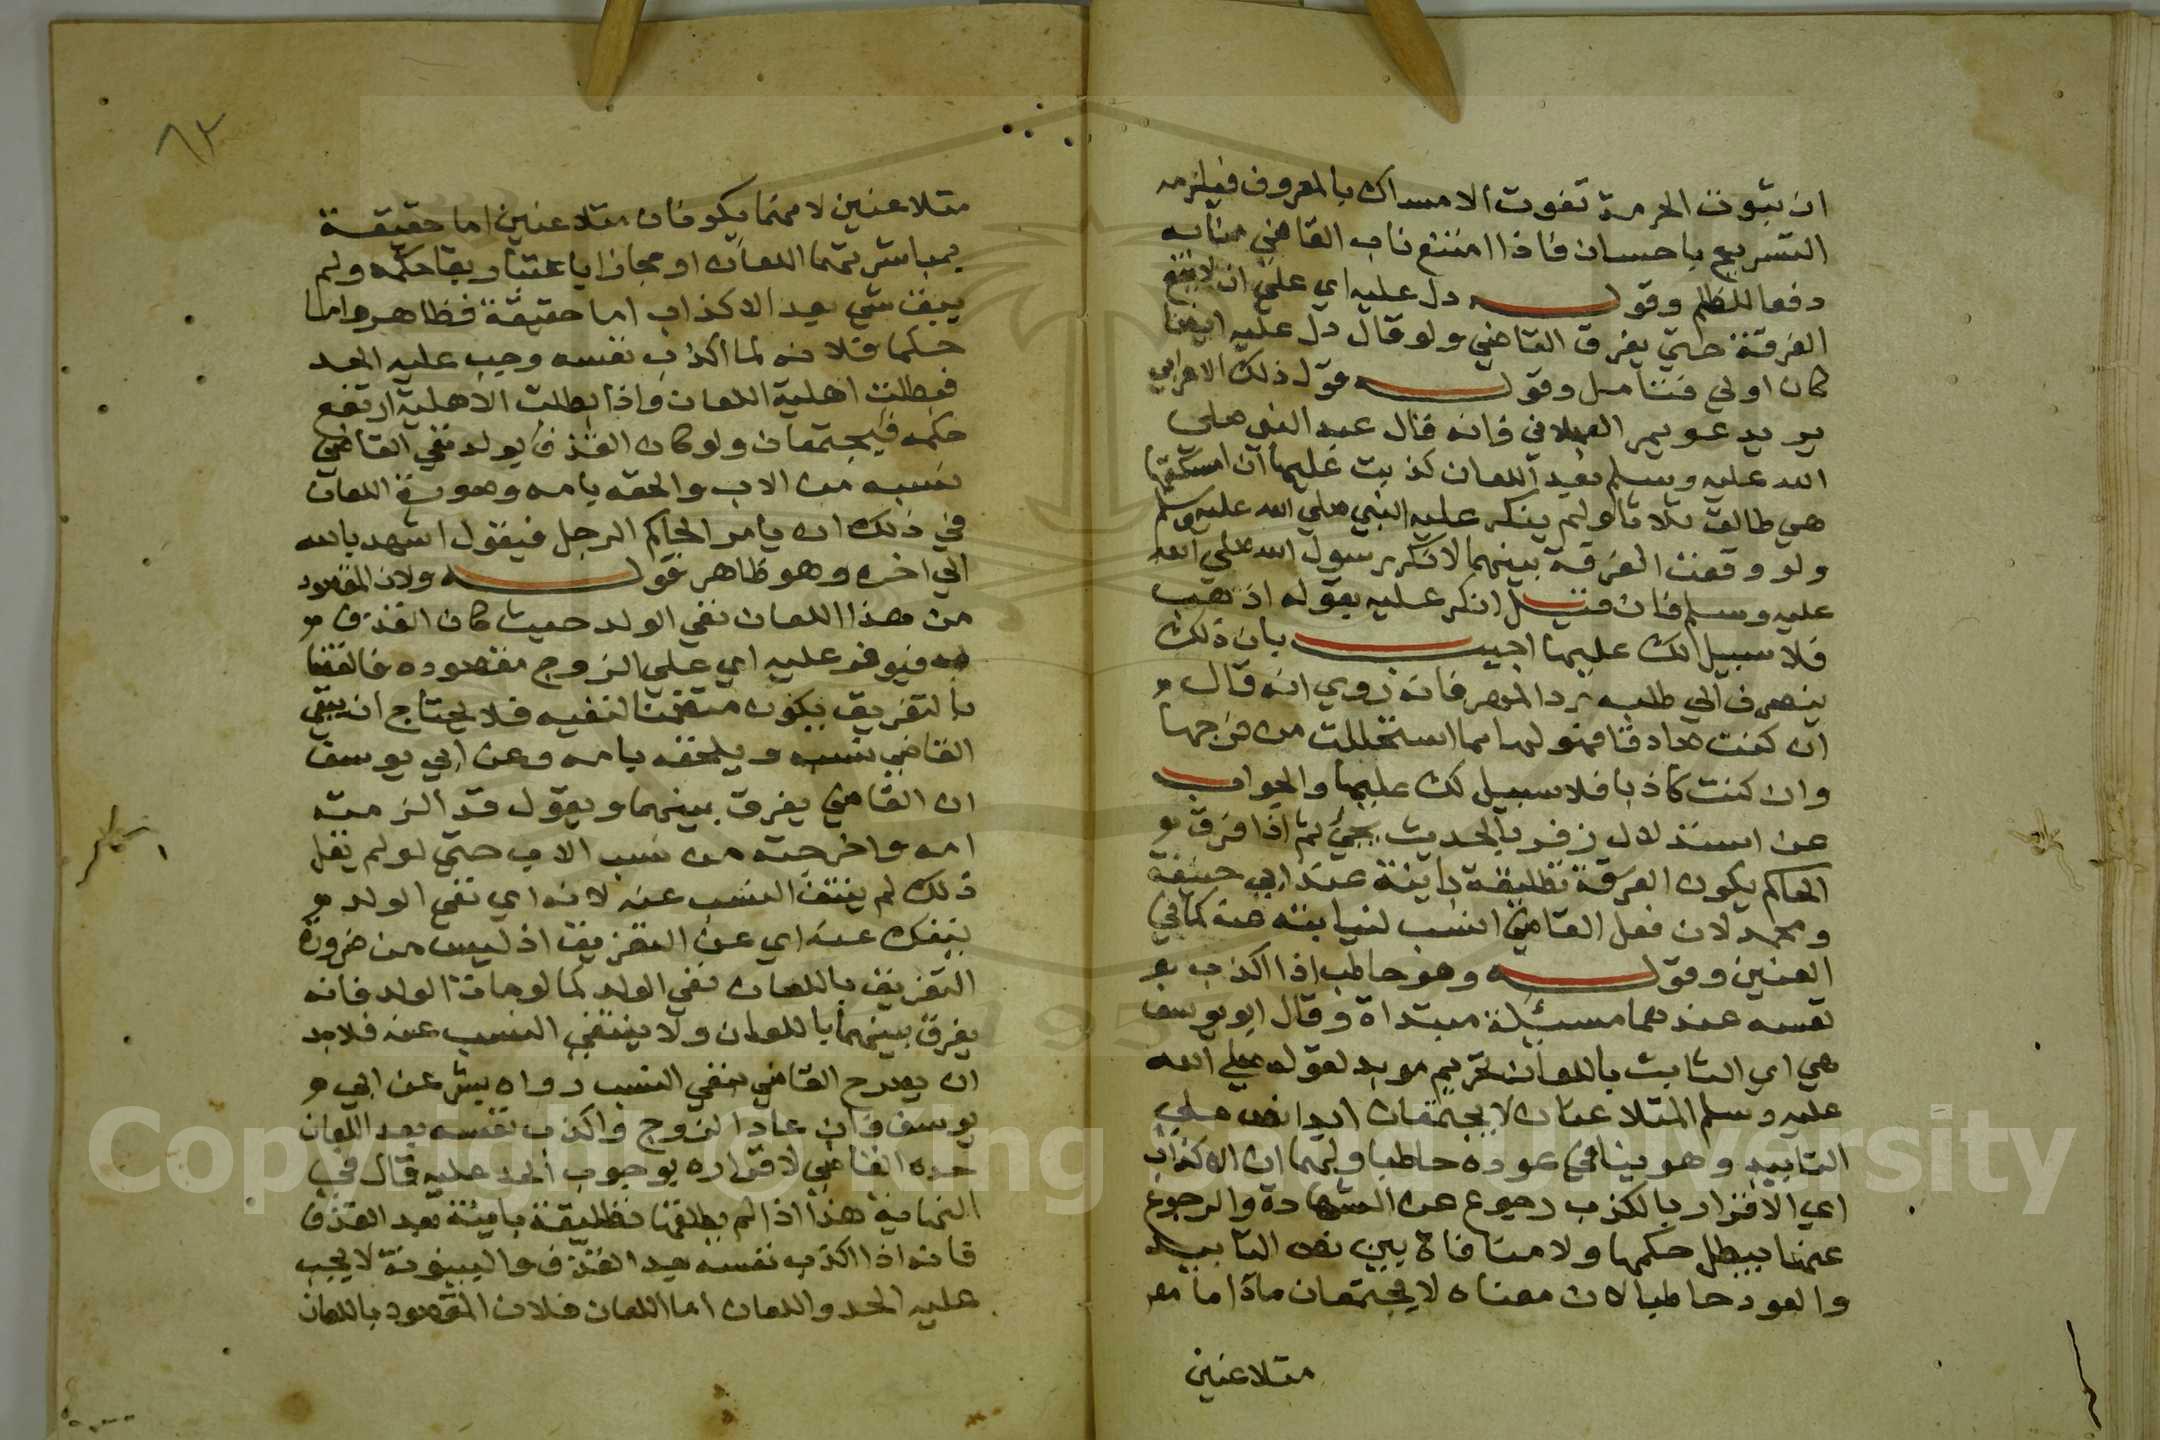 ان بثبوت الحرمة تفوت الامساك بالمعروف فيلزمه
التسريح باحسان فاذا امتنع ناب القاضي منابه
دفعا للظلم وقوله دل عليه اي على ان لا تقع
الفرقة حتي يفرق القاضي ولو قال دل عليه ايضا
كان اولي فتامل وقوله قول ذلك الاعرابي
يريد عويمر العجلاني فانه قال عند النبي صلي
الله عليه وسلم بعد اللعان كذبت عليها ان امسكتها
هي طالق ثلاثا ولم ينكر عليه النبي صلي الله عليه وسلم
ولو وقعت الفرقة بينهما لانكر رسول الله صلي الله
عليه وسلم فان قيل انكر عليه بقوله اذهب
فلا سبيل لك عليها اجيب بان ذلك
ينصرف الي طلبه رد المهر فانه روي انه قال
ان كنت صادقا فهو لها بما استحللت من فرجها
وان كنت كاذبا فلا سبيل لك عليها والجواب
عن استدلال زفر بالحديث يجئ ثم اذا فرق
الحاكم يكون الفرقة تطليقة باينة عند ابي حنيفة
ومحمد لان فعل القاضي انتسب لنيابته عنه كما في
العنين وقوله وهو خاطب اذا اكذب
نفسه عندهما مسئلة مبتداة وقال ابو يوسف
هي اي الثابت باللعان تحريم موبد لقوله صلي الله
عليه وسلم المتلاعنان لا يجتمعان ابدا نص علي
التابيد وهو ينافي عوده خاطبا ولهما ان الاكذاب
اي الاقرار بالكذب رجوع عن الشهادة والرجوع
عنها يبطل حكمها ولا منافاة بين نص التابيد
والعود خاطبا لان معناه لا يجتمعان ماداما
متلاعنين
٦٢
متلاعنين لا ممهما يكونان متلاعنين اما حقيقة
بمباشرتهما اللعان او مجازا باعتبار بقا حكمه ولم
يبق شي بعد الاكذاب اما حقيقة فظاهر واما
حكما فلانه لما اكذب نفسه وجب عليه الحد
فبطلت اهلية اللعان واذا بطلت الاهلية ارتفع
حكمه فيجتمعان ولو كان القذف بولد نفي القاضي
نسبه من الاب والحقه بامه وصورة اللعان
في ذلك ان يامر الحاكم الرجل فيقول اشهد بالله
الي اخره وهو ظاهر قوله ولان المقصود
من هذا اللعان نفي الولد حيث كان القذف
به فيوفر عليه اي علي الزوج مقصوده فالقضا
بالتفريق يكون متضمنا لنفيه فلا يحتاج ان ينفي
القاضي نسبه ويلحقه بامه وعن ابي يوسف
ان القاضي يفرق بينهما ويقول قد الزمته
امه واخرجته من نسب الاب حتي لو لم يقل
ذلك لم ينتف النسب عنه لانه اي نفي الولد
ينفك عنه اي عن التفريق اذ ليس من ضرورة
التفريق باللعان نفي الولد كما لو مات الولد فانه
يفرق بينهما باللعان ولا ينتفي النسب عنه فلا بد
ان يصرح القاضي بنفي النسب رواه بشر عن ابي
يوسف فان عاد الزوج واكذب نفسه بعد اللعان
حده القاضي لاقراره بوجوب الحد عليه قال في
النهاية هذا اذا لم يطلقها تطليقة باينة بعد القذف
فانه اذا اكذب نفسه بعد القذف والبينونة لا يجب
عليه الحد واللعان اما اللعان فلان المقصود باللعان
Copyright © King Saud University
1957